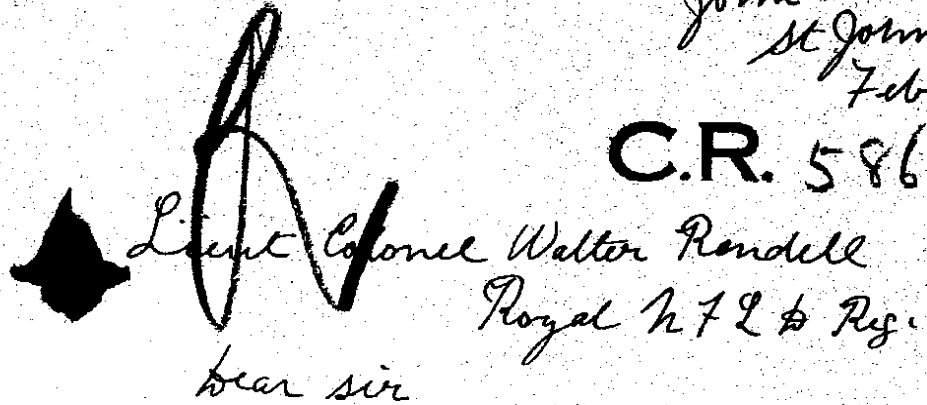 St John
Feb
C.R. 586
Lieut Colonel Walter Rendell
Royal NFLD Reg.
Dear sir